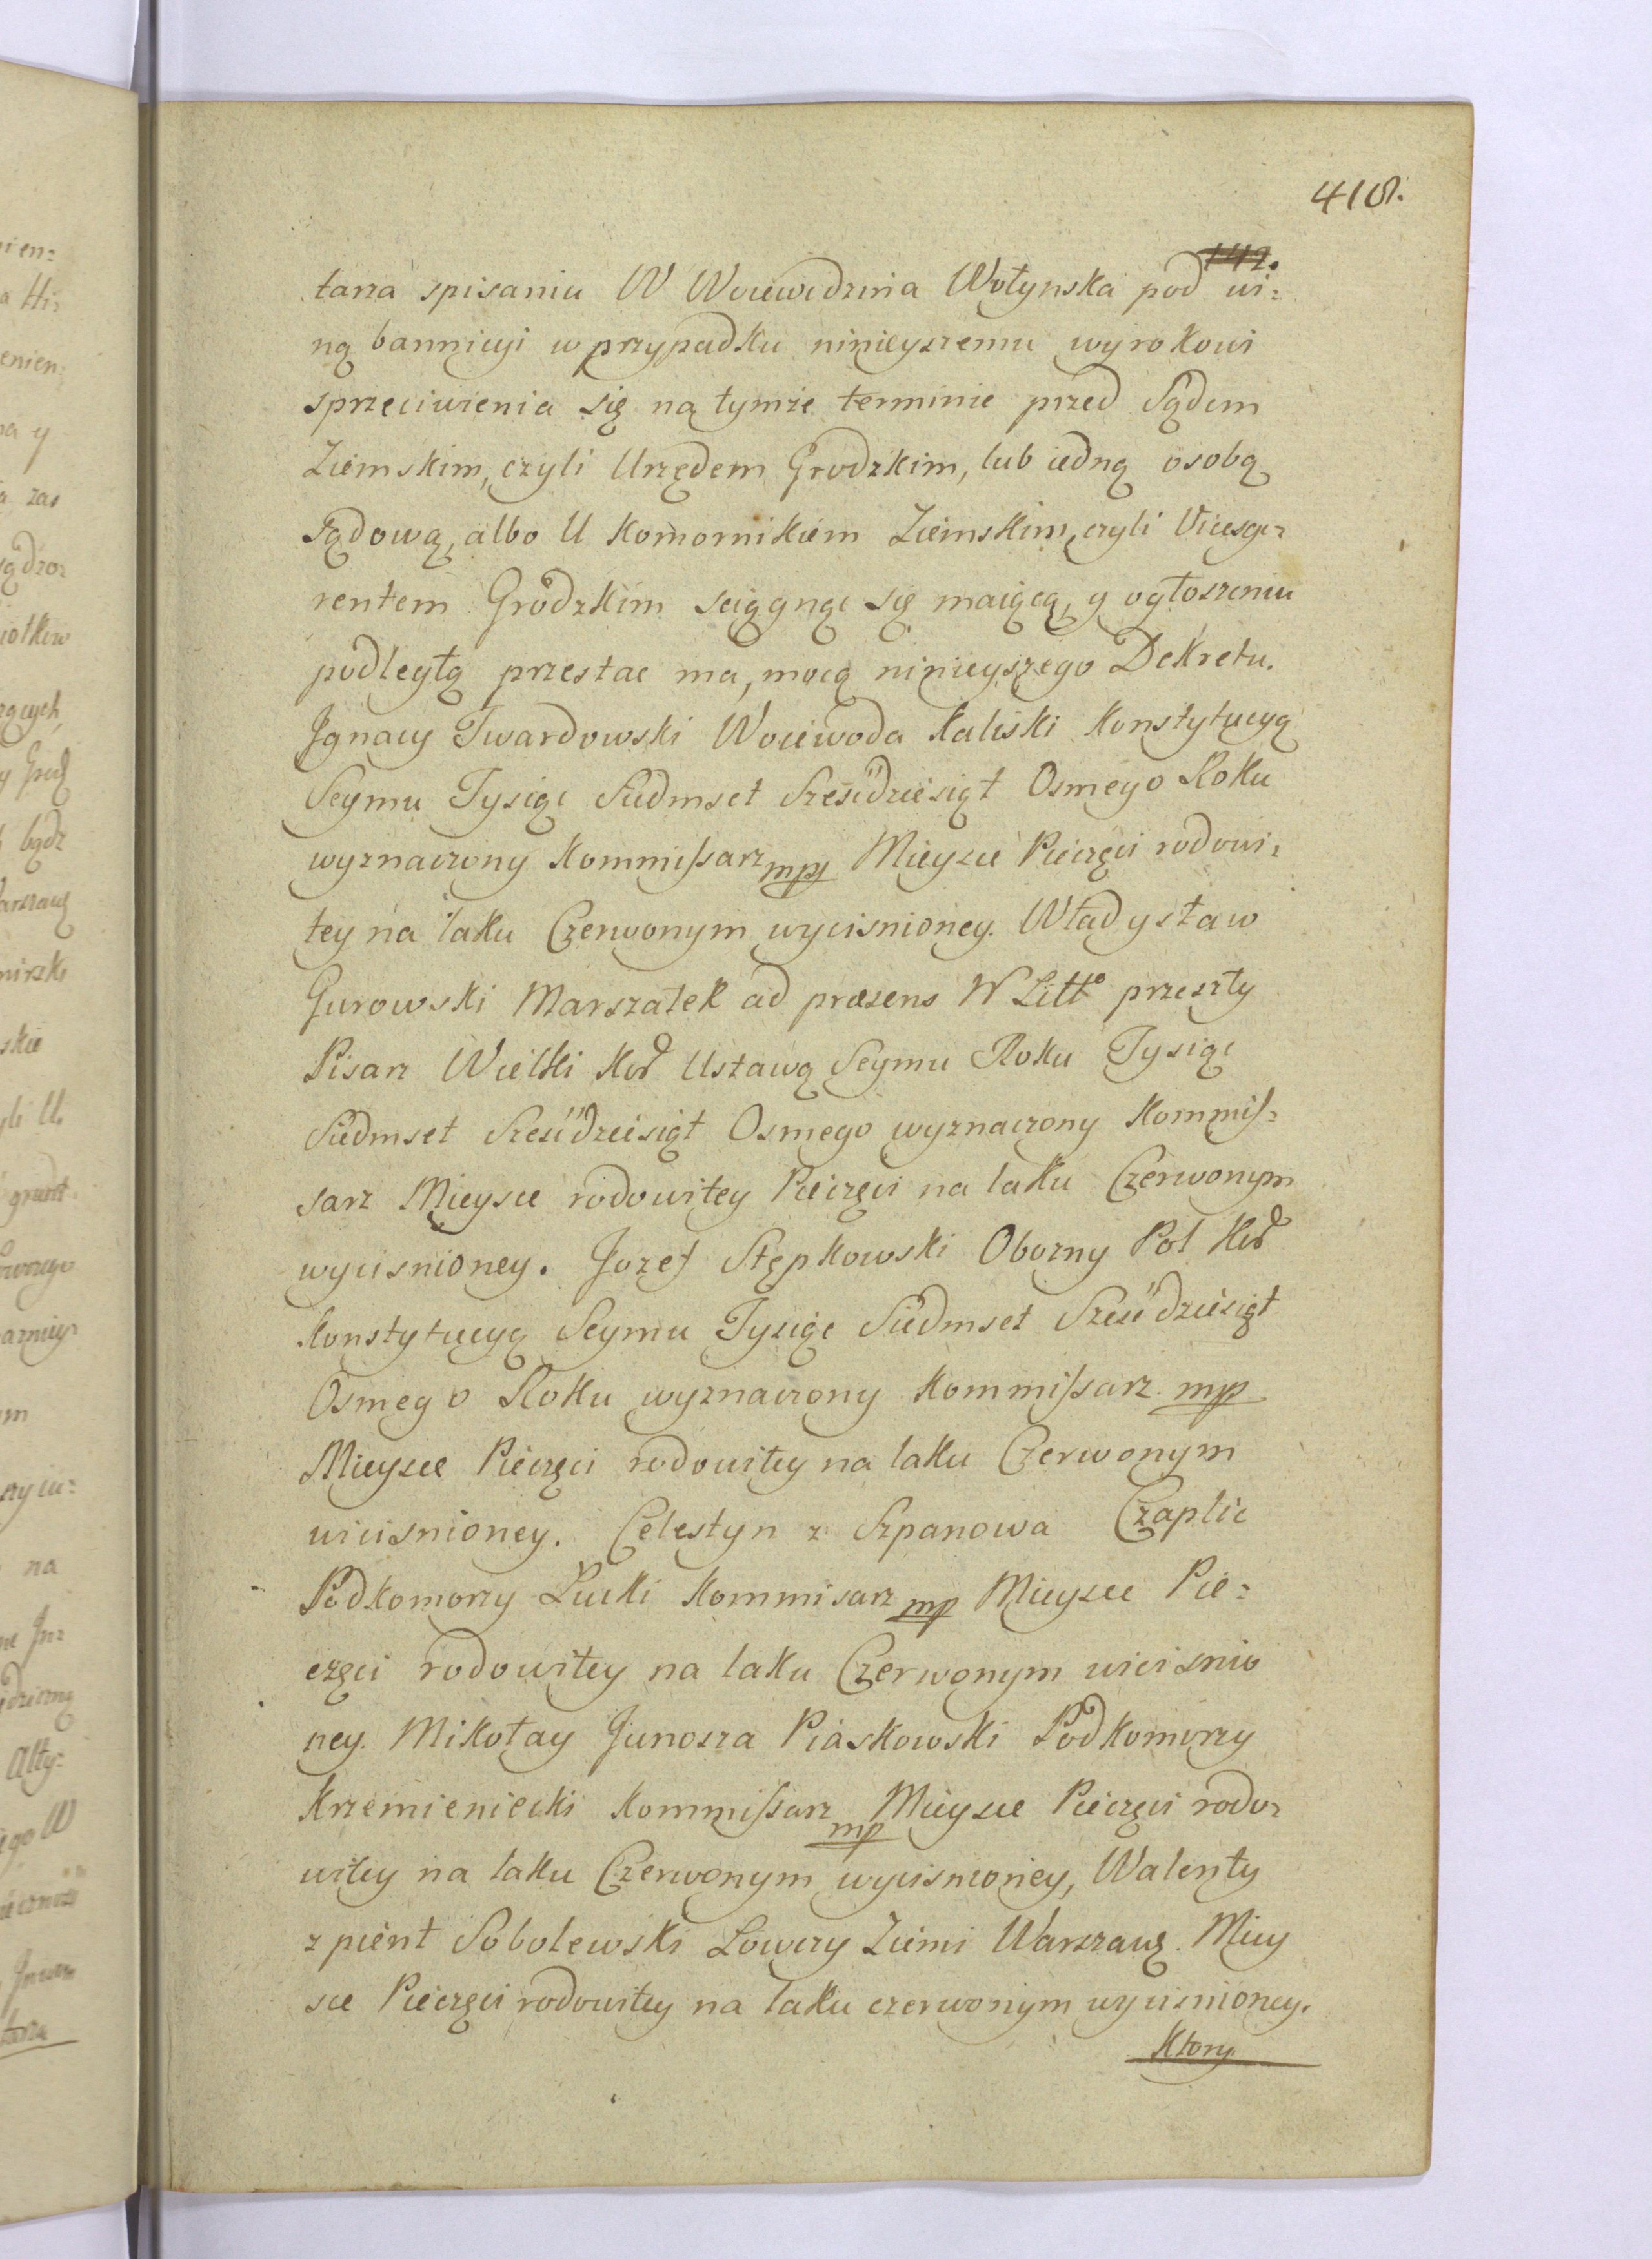 418.
142.
tarza spisaniu W Woiewodzina Wołynska pod wi=
ną bannicyi w przypadku ninieyszemu wyrokowi
sprzeciwienia się na tymże terminie przed Sądem
Ziemskim, czyli Urzędem Grodzkim, lub iedną osobą
sądową, albo U Komornikiem Ziemskim, czyli Vicesge=
rentem Grodzkim sciągnąc się maiącą, y ogłoszeniu
podległą przestac ma, mocą ninieyszego Dekretu.
Jgnacy Twardowski Woiewoda Kaliski Konstytucyą
Seymu Tysiąc Siedmset Sześćdziesiąt Osmego Roku
wyznaczony Kommissarz mp Mieysce Pieczęci rodowi=
tey na laku Czerwonym wycisnioney. Władysław
Gurowski Marszałek ad præsens W Litto przeszły
Pisarz Wielki Kor Ustawą Seymu Roku Tysiąc
Siedmset Sześćdziesiąt Osmego wyznaczony Kommis=
sarz Mieysce rodowitey Pieczęci na laku Czerwonym
wycisnioney. Jozef Stępkowski Obozny Pol Kor
Konstytucyą Seymu Tysiąc Siedmset Sześćdziesiąt
Osmego Roku wyznaczony Kommissarz mp
Mieysce Pieczęci rodowitey na laku Czerwonym
wicisnioney. Celestyn z Szpanowa Czaplic
Podkomorzy Łucki Kommisarz mp Mieysce Pie=
częci rodowitey na laku Czerwonym wicisnio
ney. Mikołay Junosza Piaskowski Podkomorzy
Krzemieniecki Kommissarz mp Mieysce Pieczęci rodo=
witey na laku Czerwonym wycisnioney, Walenty
z pient Sobolewski Łowczy Ziemi Warszaws. Miey
sce Pieczęci rodowitey na laku czerwonym wycisnioney.
Ktory